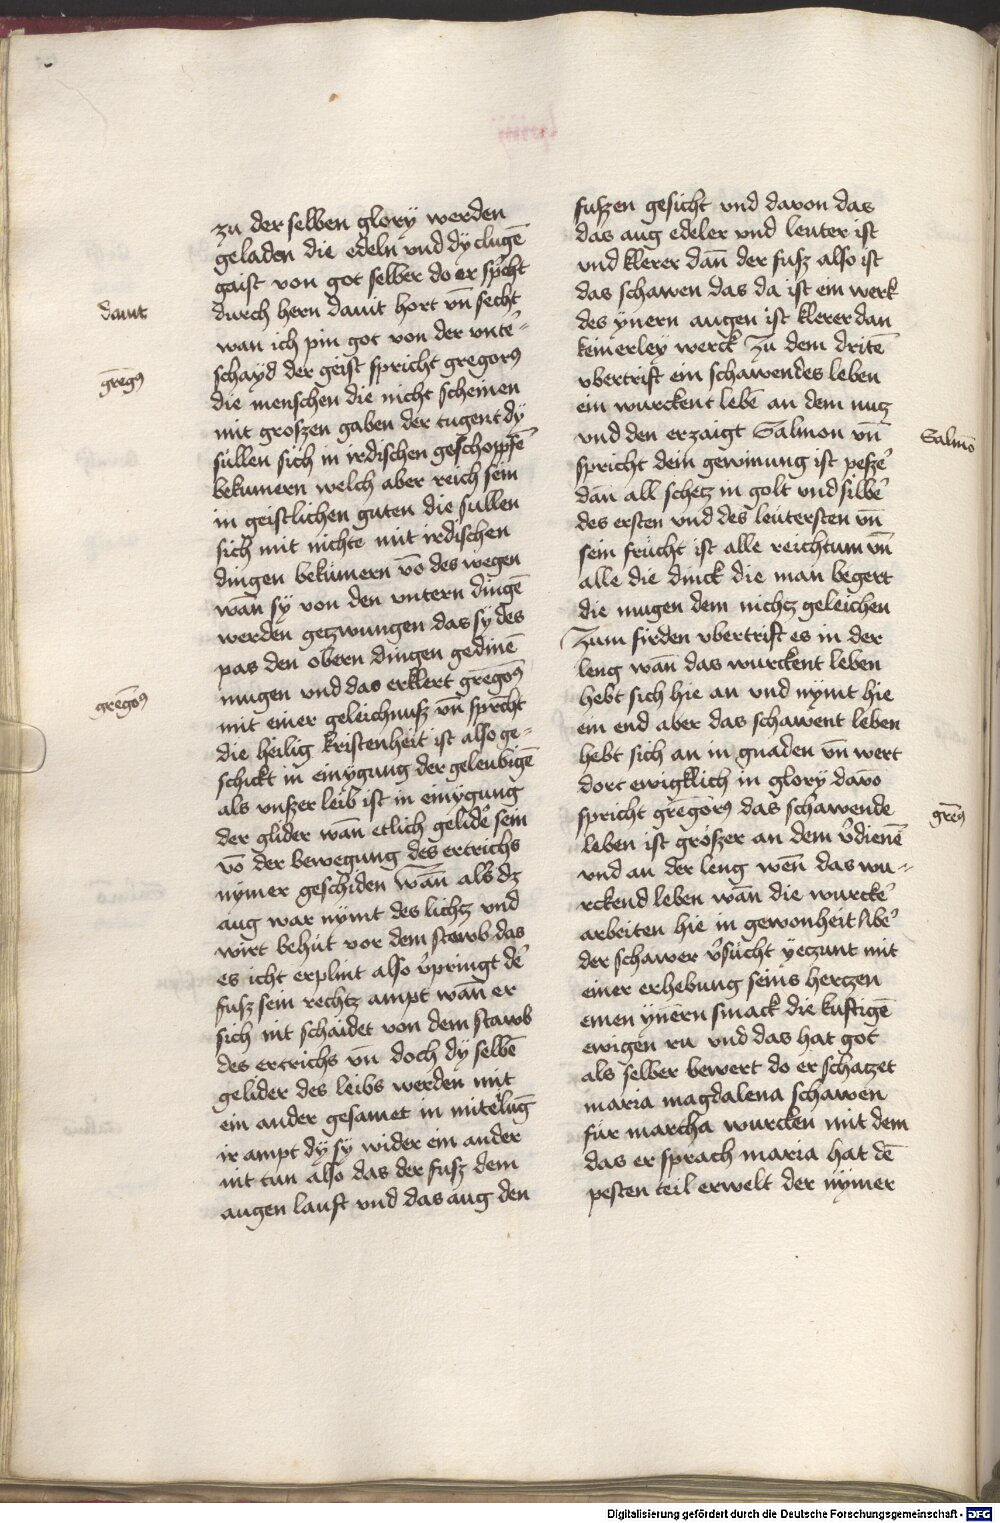 zu der selben glory werden
geladen die edeln vnd dy clugē
gaist von got selber do er spͤcht
durch hern dauit hort vn̄ secht
wan ich pin got von der vnte᷑=
schayd der geist spricht gregorꝰ
die menschen die nicht scheinen
mit groszen gaben der tugent dy
sullen sich in irdischen geschopffē
bekumern welch aber reich sein
in geistlichen guten die sullen
sich mit nichte mit irdischen
dingen bekumern vō des wegen
wan sy von den vntern dingē
werden getzwungen das sy des
pas den obern dingen gedinē
mugen vnd das erklert gregōꝰ
mit einer geleichnusz vn̄ sprcht
die heilig kristenheit ist also ge=
schickt in einygung der geleubigē
als vnszer leib ist in einygung
der glider wan̄ etlich gelide᷑ sein
vō der bewegung des ertrichs
nymer geschiden wan̄ als dz
aug war nymt des lichtz vnd
wirt behut vor dem stawb das
es icht erplint also v᷑pringt de᷑
fusz sein rechtz ampt wan̄ er
sich nit schaidet von dem stawb
des ertrichs vn̄ doch dy selbē
gelider des leibs werden mit
ein ander gesamet in mitelūg
ir ampt dy sy wider ein ander
nit tun also das der fusz dem
augen lauft vnd das aug den
dauit
gregꝰ
gregōꝰ
fuszen gesicht vnd davon das
das aug edeler vnd leuter ist
vnd klerer dan̄ der fusz also ist
das schawen das da ist ein werk
des ynern augen ist klerer dan
keinerley werck Zu dem dritē
vbertrift ein schawendes leben
ein wurckent lebē an dem nutz
vnd den erzaigt Salmon vn̄
spricht dein gewinung ist pesze᷑
dan̄ all schetz in golt vnd silbe᷑
des ersten vnd des leutersten vn̄
sein frucht ist alle reichtum vn̄
alle die dinck die man begert
die mugen dem nichtz geleichen
Zum firden vbertrift es in der
leng wan̄ das wurckent leben
hebt sich hie an vnd nymt hie
ein end aber das schawent leben
hebt sich an in gnaden vn̄ wert
dort ewigklich in glory davō
spricht gregorꝰ das schawende
leben ist groszer an dem v᷑dienē
vnd an der leng wen̄ das wu=
rckend leben wan̄ die wurcke᷑
arbeiten hie in gewonheit libe᷑
der schawer v᷑sucht yeczunt mit
einer erhebung seins hertzen
einen ynern smack die kuftigē
ewigen ru vnd das hat got
als selber bewert do er schatzet
maria magdalena schawen
fur martha wurcken mit dem
das er sprach maria hat dē
pesten teil erwelt der nymer
Salmō
gregꝰ
Digitalisierung gefördert durch die Deutsche Forschungsgemeinschaft - DFG